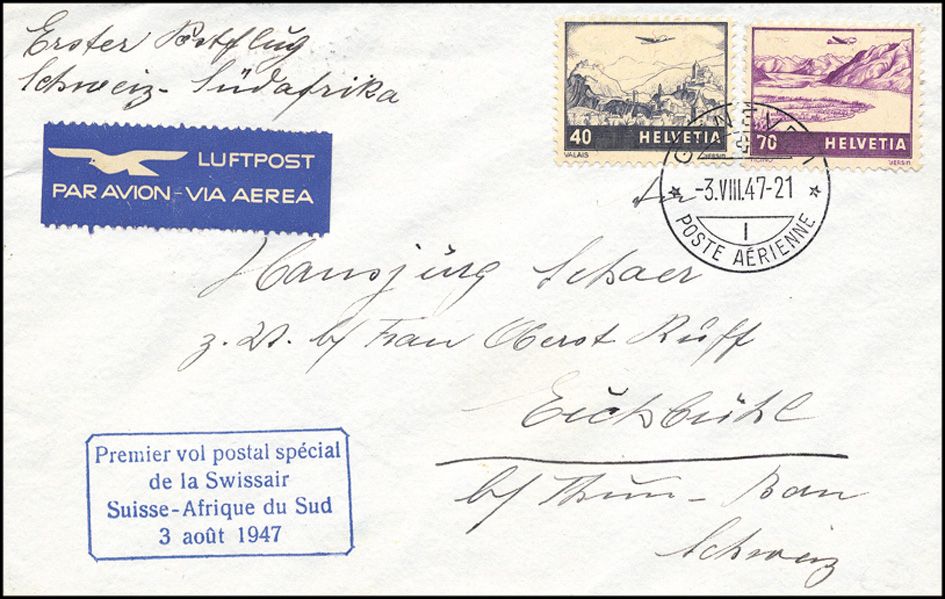 Erster Postflug
Schweiz-Südafrika
40 HELVETIA
VALAIS
70 HELVETIA
LUFTPOST
PAR AVION - VIA AEREA
-3.VIII.47-21
I
POSTE AÉRIENNE
Hansjürg Schaer
z. Zt. b/ Frau Oberst Rüff
Eichbühl
b/ Thun-
Schweiz
Premier vol postal spécial
de la Swissair
Suisse-Afrique du Sud
3 août 1947